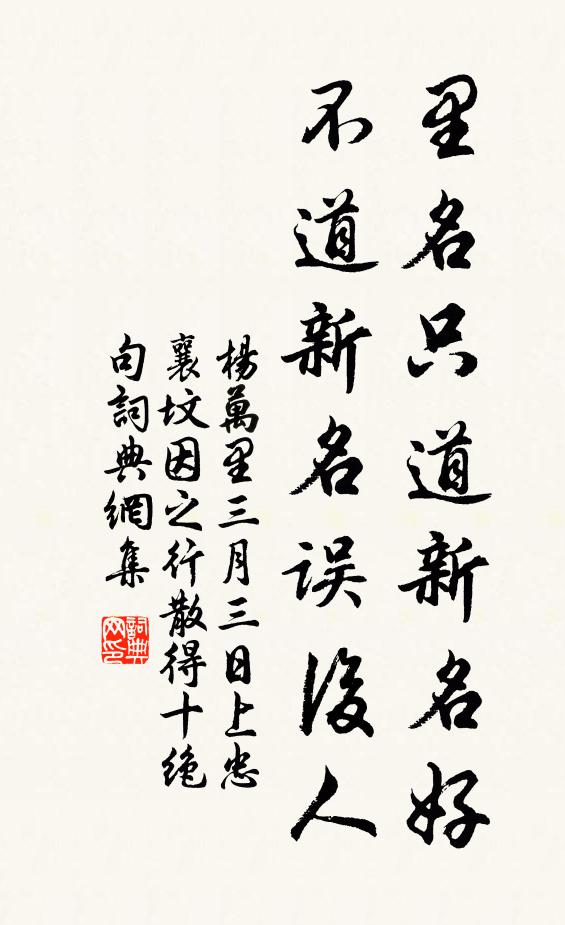 里名只道新名好
不道新名误後人
楊萬里三月三日上忠
襄坟因之行散得十绝
句詞典網集
詞典
网印